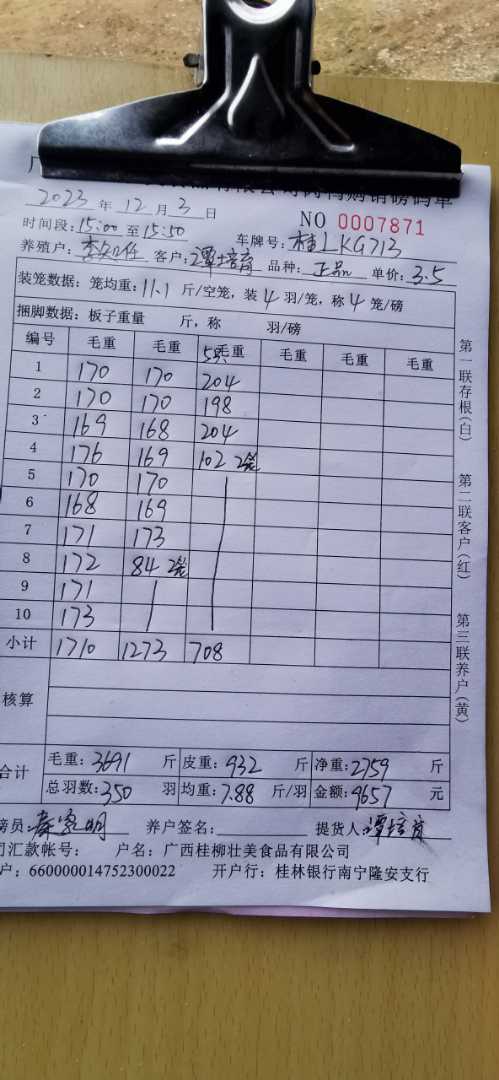 购销磅码单
2023 年 12 月 3 日 NO 0007871
时间段: 15:00 至 15:50 车牌号: 桂LKG713
养殖户: 客户: 谭培育 品种: 正品 单价: 3.5
装笼数据: 笼均重: 11.1 斤/空笼, 装 4 羽/笼, 称 4 笼/磅
捆脚数据: 板子重量 斤, 称 羽/磅
编号 毛重 毛重 5只毛重 毛重 毛重 毛重
1 170 170 204
2 170 170 198
3 169 168 204
4 176 169 102 2笼
5 170 170
6 168 169
7 171 173
8 172 84 2笼
9 171
10 173
小计 1710 1273 708
核算
合计 毛重: 3691 斤 皮重: 932 斤 净重: 2759 斤
总羽数: 350 羽 均重: 7.88 斤/羽 金额: 9657 元
磅员: 养户签名: 提货人: 谭培育
司汇款帐号: 户名: 广西桂柳壮美食品有限公司
户: 660000014752300022 开户行: 桂林银行南宁隆安支行
第一联存根(白)
第二联客户(红)
第三联养户(黄)